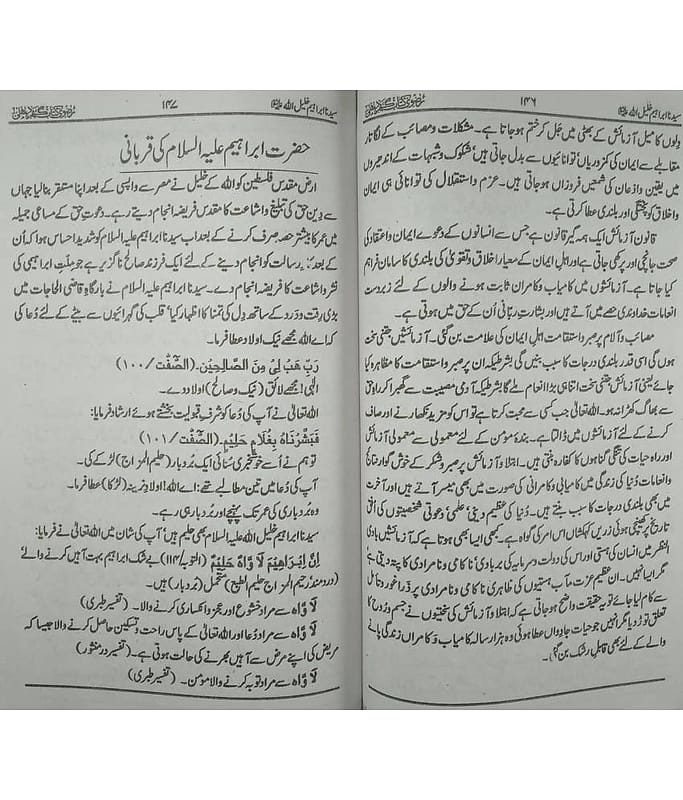 سیدنا ابراہیم خلیل اللہ علیہ السلام
۱۴۶
دلوں کا میل آزمائش کے بھٹی میں جل کر ختم ہو جاتا ہے۔ مشکلات و مصائب کے لگاتار
مقابلے سے ایمان کی کمزوریاں توانائیوں سے بدل جاتی ہیں‘ شکوک و شبہات کے اندھیروں
میں یقین و اذعان کی شمعیں فروزاں ہو جاتی ہیں۔ عزم و استقلال کی توانائی ہی ایمان
و اخلاق کو پختگی اور بلندی عطا کرتی ہے۔
قانون آزمائش ایک ہمہ گیر قانون ہے جس سے انسانوں کے دعوے ایمان و اعتقاد کی
صحت جانچی اور پرکھی جاتی ہے اور اہل ایمان کے معیار اخلاق و تقویٰ کی بلندی کا سامان فراہم
کیا جاتا ہے۔ آزمائشوں میں کامیاب و کامران ثابت ہونے والوں کے لئے زبردست
انعامات خداوندی حصے میں آتے ہیں اور بشارت ربانی اُن کے حق میں ہوتی ہے۔
مصائب و آلام پر صبر و استقامت اہل ایمان کی علامت بن گئی۔ آزمائشیں جتنی سخت
ہوں گی اسی قدر بلندی درجات کا سبب بنیں گی بشرطیکہ ان پر صبر و استقامت کا مظاہرہ کیا
جائے یعنی آزمائش جتنی سخت اتنا ہی بڑا انعام ملے گا بشرطیکہ آدمی مصیبت سے گھبرا کر راہ حق
سے بھاگ کھڑا نہ ہو۔ اللہ تعالیٰ جب کسی سے محبت کرتا ہے تو اس کو مزید نکھارنے اور صاف
کرنے کے لئے آزمائشوں میں ڈالتا ہے۔ بندہ مومن کے لئے معمولی سے معمولی آزمائش
اور راہ حیات کی تنگی گناہوں کا کفارہ بنتی ہیں۔ ابتلا و آزمائش پر صبر و شکر کے خوش گوار نتائج
و انعامات دُنیا کی زندگی میں کامیابی و کامرانی کی صورت میں بھی میسر آتے ہیں اور آخرت
میں بھی بلندی درجات کا سبب بنتے ہیں۔ دُنیا کی عظیم دینی‘ علمی‘ دعوتی شخصیتوں کی اُفق
تاریخ پر کھینچی ہوئی زریں کہکشاں اس امر کی گواہ ہے۔ کبھی ایسا بھی ہوتا ہے کہ آزمائشیں بادی
النظر میں انسان کی ہستی اور اس کی دولت و سرمایہ کی بربادی‘ ناکامی و نامرادی کا پتہ دیتی ہے
مگر ایسا نہیں۔ ان عظیم عزت مآب ہستیوں کی ظاہری ناکامی و نامرادی پر ذرا غور و تامل
سے کام لیا جائے تو یہ حقیقت واضح ہو جاتی ہے کہ ابتلا و آزمائش کی سختیوں نے جسم و رُوح کا
تعلق توڑ دیا مگر انہیں جو حیات جاوداں عطا ہوئی وہ ہزار سالہ کامیاب و کامراں زندگی پانے
والے کے لئے بھی قابل رشک بن گئی۔
سیدنا ابراہیم خلیل اللہ علیہ السلام
۱۴۷
حضرت ابراہیم علیہ السلام کی قربانی
ارض مقدس فلسطین کو اللہ کے خلیل نے مصر سے واپسی کے بعد اپنا مستقر بنا لیا جہاں
سے دین حق کی تبلیغ و اشاعت کا مقدس فریضہ انجام دیتے رہے۔ دعوتِ حق کے مساعی جمیلہ
میں عمر کا بیشتر حصہ صرف کرنے کے بعد اب سیدنا ابراہیم علیہ السلام کو شدید احساس ہوا کہ اُن
کے بعد رسالت کو انجام دینے کے لئے ایک فرزند صالح ناگزیر ہے جو ملتِ ابراہیمی کی
نشر و اشاعت کا فریضہ انجام دے۔ سیدنا ابراہیم علیہ السلام نے بارگاہِ قاضی الحاجات میں
بڑی رقت و درد کے ساتھ دل کی تمنا کا اظہار کیا‘ قلب کی گہرائیوں سے بیٹے کے لئے دُعا کی
کہ اے اللہ مجھے نیک اولاد عطا فرما۔
رَبِّ هَبْ لِیْ مِنَ الصَّالِحِیْنَ۔ (الصّٰفّٰت/۱۰۰)
الٰہی! مجھے لائق (نیک و صالح) اولاد دے۔
اللہ تعالیٰ نے آپ کی دُعا کو شرفِ قبولیت بخشتے ہوئے ارشاد فرمایا:
فَبَشَّرْنَاهُ بِغُلَامٍ حَلِیْمٍ۔ (الصّٰفّٰت/۱۰۱)
تو ہم نے اُسے خوشخبری سنائی ایک بُردبار (حلیم المزاج) لڑکے کی۔
آپ کی دُعا میں تین مطالبے تھے: اے اللہ! اولاد نرینہ (لڑکا) عطا فرما۔
وہ بُردباری کی عمر تک پہنچے اور بُردبار ہی رہے۔
سیدنا ابراہیم خلیل اللہ علیہ السلام بھی حلیم ہیں‘ آپ کی شان میں اللہ تعالیٰ نے فرمایا:
اِنَّ اِبْرَاهِیْمَ لَاَ وَّاهٌ حَلِیْمٌ (التوبہ/۱۱۴) بے شک ابراہیم بہت آہیں کرنے والے
(دردمند‘ رحیم المزاج حلیم الطبع) متحمل (بُردبار) ہیں۔
لَاَ وَّاه سے مراد خشوع اور عجز و انکساری کرنے والا۔ (تفسیر طبری)
لَاَ وَّاه سے مراد دُعا اور اللہ تعالیٰ کے پاس راحت و تسکین حاصل کرنے والا جیسا کہ
مریض کی اپنے مرض سے آہیں بھرنے کی حالت ہوتی ہے۔ (تفسیر درمنثور)
لَاَ وَّاه سے مراد توبہ کرنے والا مومن۔ (تفسیر طبری)